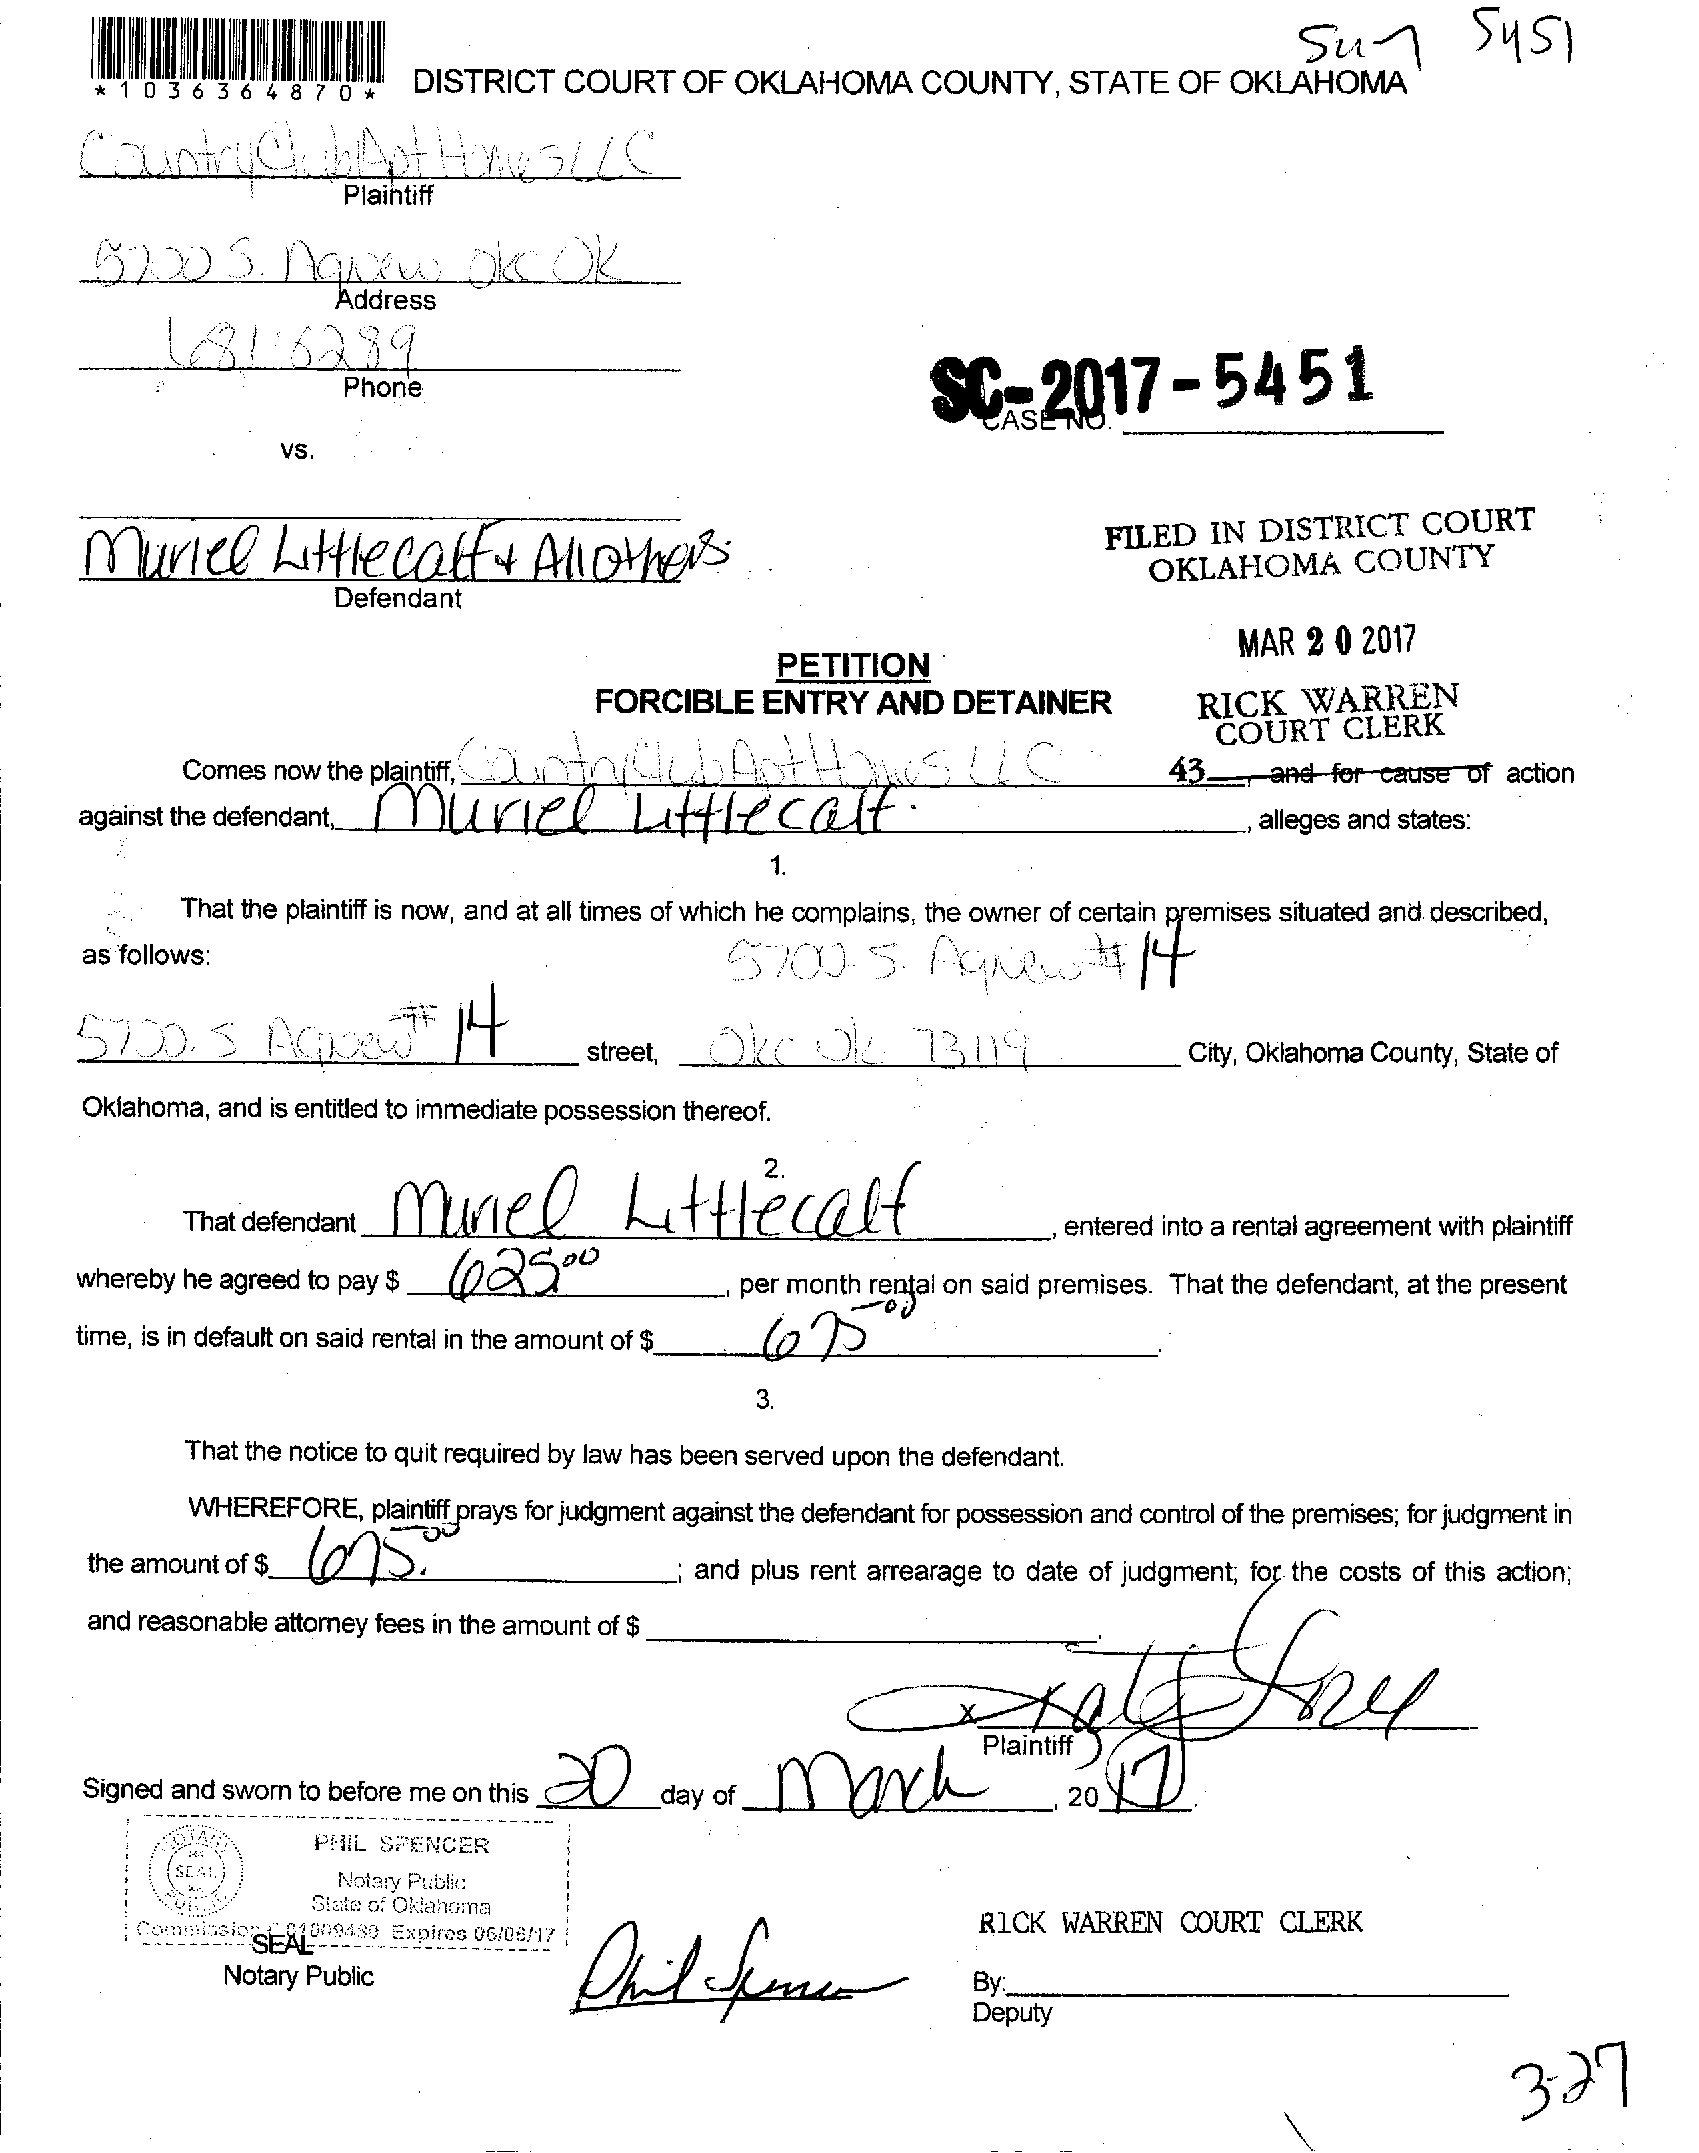 5451
*1036364870* DISTRICT COURT OF OKLAHOMA COUNTY, STATE OF OKLAHOMA
Country Club Apt Homes LLC
Plaintiff
5700 S. Agnew Okc OK
Address
681-6289
Phone
SC-2017-5451
CASE NO.
vs.
Muriel Littlecalf & All others
Defendant
FILED IN DISTRICT COURT
OKLAHOMA COUNTY
MAR 20 2017
RICK WARREN
COURT CLERK
PETITION
FORCIBLE ENTRY AND DETAINER
Comes now the plaintiff, Country Club Apt Homes LLC 43 , and for cause of action
against the defendant, Muriel Littlecalf , alleges and states:
1.
That the plaintiff is now, and at all times of which he complains, the owner of certain premises situated and described,
as follows: 5700 S. Agnew # 14
5700 S Agnew # 14 street, Okc Ok 73119 City, Oklahoma County, State of
Oklahoma, and is entitled to immediate possession thereof.
2.
That defendant Muriel Littlecalf , entered into a rental agreement with plaintiff
whereby he agreed to pay $ 625 00 , per month rental on said premises. That the defendant, at the present
time, is in default on said rental in the amount of $ 675 00 .
3.
That the notice to quit required by law has been served upon the defendant.
WHEREFORE, plaintiff prays for judgment against the defendant for possession and control of the premises; for judgment in
the amount of $ 675. 00 ; and plus rent arrearage to date of judgment; for the costs of this action;
and reasonable attorney fees in the amount of $
x
Plaintiff
Signed and sworn to before me on this 20 day of March , 20 17 .
PHIL SPENCER
NOTARY
SEAL
PUBLIC
Notary Public
State of Oklahoma
Commission # 01009480 Expires 06/06/17
SEAL
Notary Public
Phil Spencer
RICK WARREN COURT CLERK
By:
Deputy
3-27